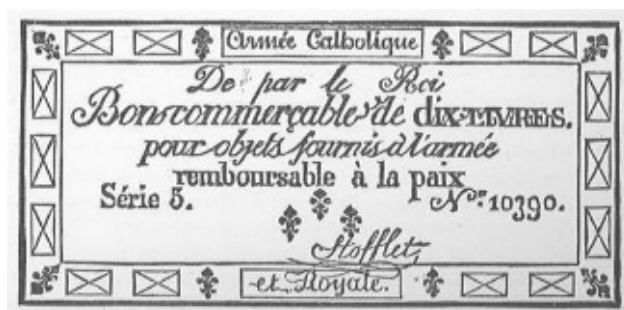 Armée Catholique
De par le Roi
Bon commerçable de dix-LIVRES.
pour objets fournis à l'armée
remboursable à la paix
Série 5. Nos. 10390.
Stofflet
et Royale.